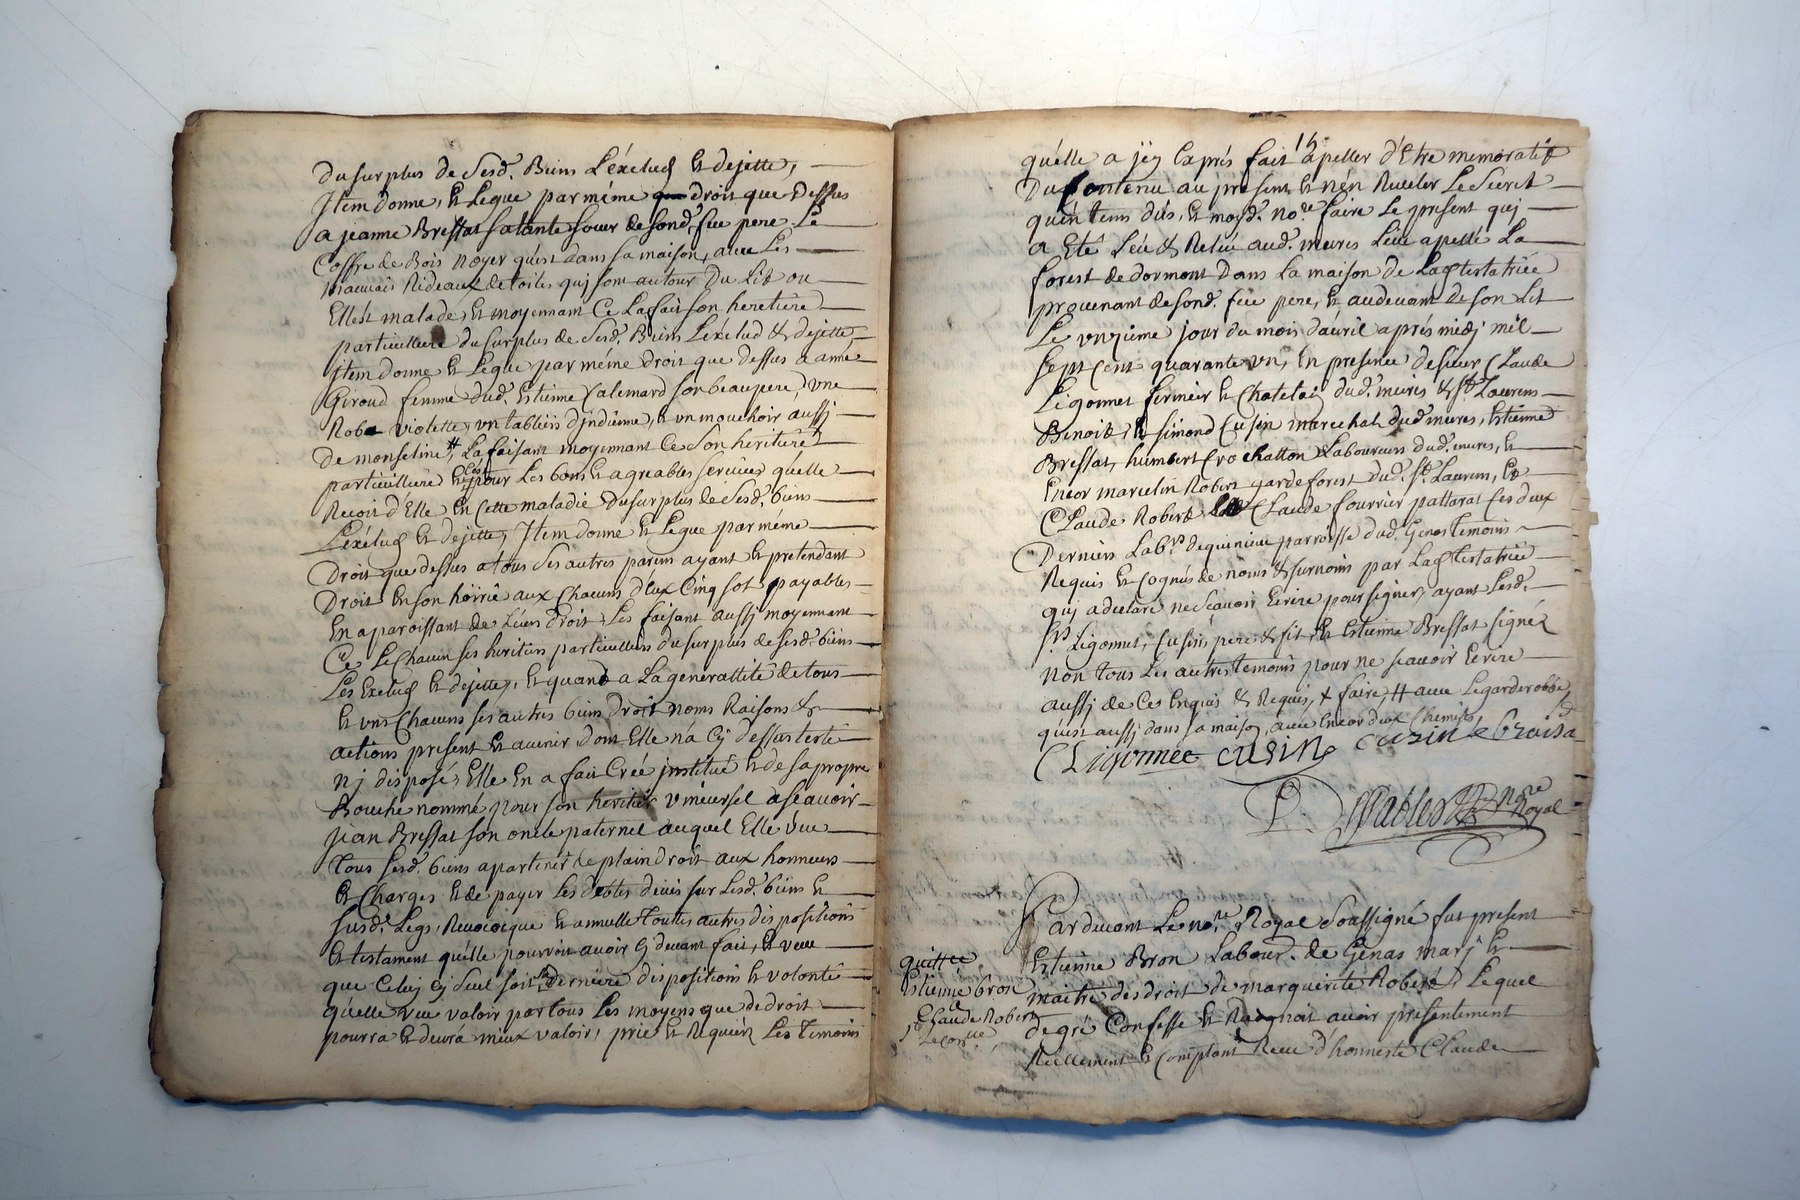 Du surplus de sesd. Biens L'exclud et dejette,
Item donne, et Legue par méme droit que Dessus
a jeanne Bressat sa tante soeur de sond. feu pere Le
Coffre de Bois noyer qu'est dans sa maison, avec Les
mauvais Rideaux de toiles qui sont autour Du Lit ou
Ell'est malade, et moyennant Ce La fait son heretiere
particulliere du surplus de sesd. Biens L'exclud & dejette
Item donne et Legue par méme Droit que dessus a anné
Giroud femme dud. Estienne Valemard son beaupere, vne
Robe violette, vn tablier d'jndienne, et vn mouchoir aussi
de monseline # La faisant moyennant Ce son heritiere
particulliere et Ce pour Les bons et agreables services quélle
Recoit d'Elle en Cette maladie Du surplus de sesd. biens
L'éxclud et dejette, Item donne et Legue par méme
Droit que dessus a tous ses autres parens ayant et pretendant
Droit en son hoirie aux Chacuns d'eux Cinq sols payables
En aparoissant de Léurs droit, Les faisant aussi moyennant
Ce Le Chacun ses heritiers particulliers du surplus de sesd. biens
Les Exclud et dejette, et quand a La generallité de tous
et vns Chacuns ses autres biens droit noms Raisons &
actions present et avenir dont Elle n'a Cy dessus testé
nj disposé, Elle En a fait Créé institué et de sa propre
Bouche nommé pour son heritier vniversel a sçavoir
Jean Bressat son oncle paternel auquel Elle veu
Tous sesd. biens apartenir de plain droit aux honneurs
et Charges et de payer les debtes deües sur Lesd. biens et
susd. Legs, Revocque et annulle toutes autres dispositions
et testament quélle pourroit avoir Cy devant fait, et veu
que Celuy Cy seul soit sa Derniere disposition et volonté
quélle veu valoir par tous Les moyens que de droit
pourra et devra mieux valoir, prie et Requiert Les temoins
15
quélle a jey Caprés fait apeller d'Etre memoratif
Du Contenu au present et n'én Reveler Le Secret
qu'én tems düs, et moyd. no.re faire Le present qui
a Eté Leu & Releu aud. meures Lieu apellé La
forest de dormont Dans La maison de Lad. testatrice
provenant de sond. feu pere, et audevant de son Lit
Le vnzieme jour du mois d'avril aprés midj mil
sept Cent quarante vn, En presence de sieur Claude
Ligonnet fermier et Chatelain dud. meures & St. Laurens
Benoit, et simond Cusin marechal dud. meures, Estienne
Bressat, humbert Crochatton Laboureurs dud. meures, et
Encor marcelin Robert gardeforest dud. St. Laurens, et
Claude Robert Claude fourrier pattarat Ces deux
Derniers Lab.rs de parroisse dud. Genas temoins
Requis et Cognus de noms & surnoms par Lad. testatrice
qui a declaré ne Sçavoir Ecrire pour signer, ayant Lesd.
Srs. Ligonnet, Cusin pere & fils, et Estienne Bressat signéz
non tous Les autres temoins pour ne scavoir Ecrire
aussi de Ce Enquis & Requis, & faire, # avec Le garderobbe
qu'est aussi dans sa maison, avec Encor deux Chemises,
CLigonnet CUSIN CUSIN E Braisa
no.re Royal
Pardevant Le no.re Royal Soussigné fut present
Estienne Bron Labour. de Genas mary et
maitre des droit de marguerite Robert, Lequel
de gré Confesse et Recognoit avoir presentement
Reellement et Comptant Receu d'honneste Claude
quittce
Estienne bron
a
Claude Robert